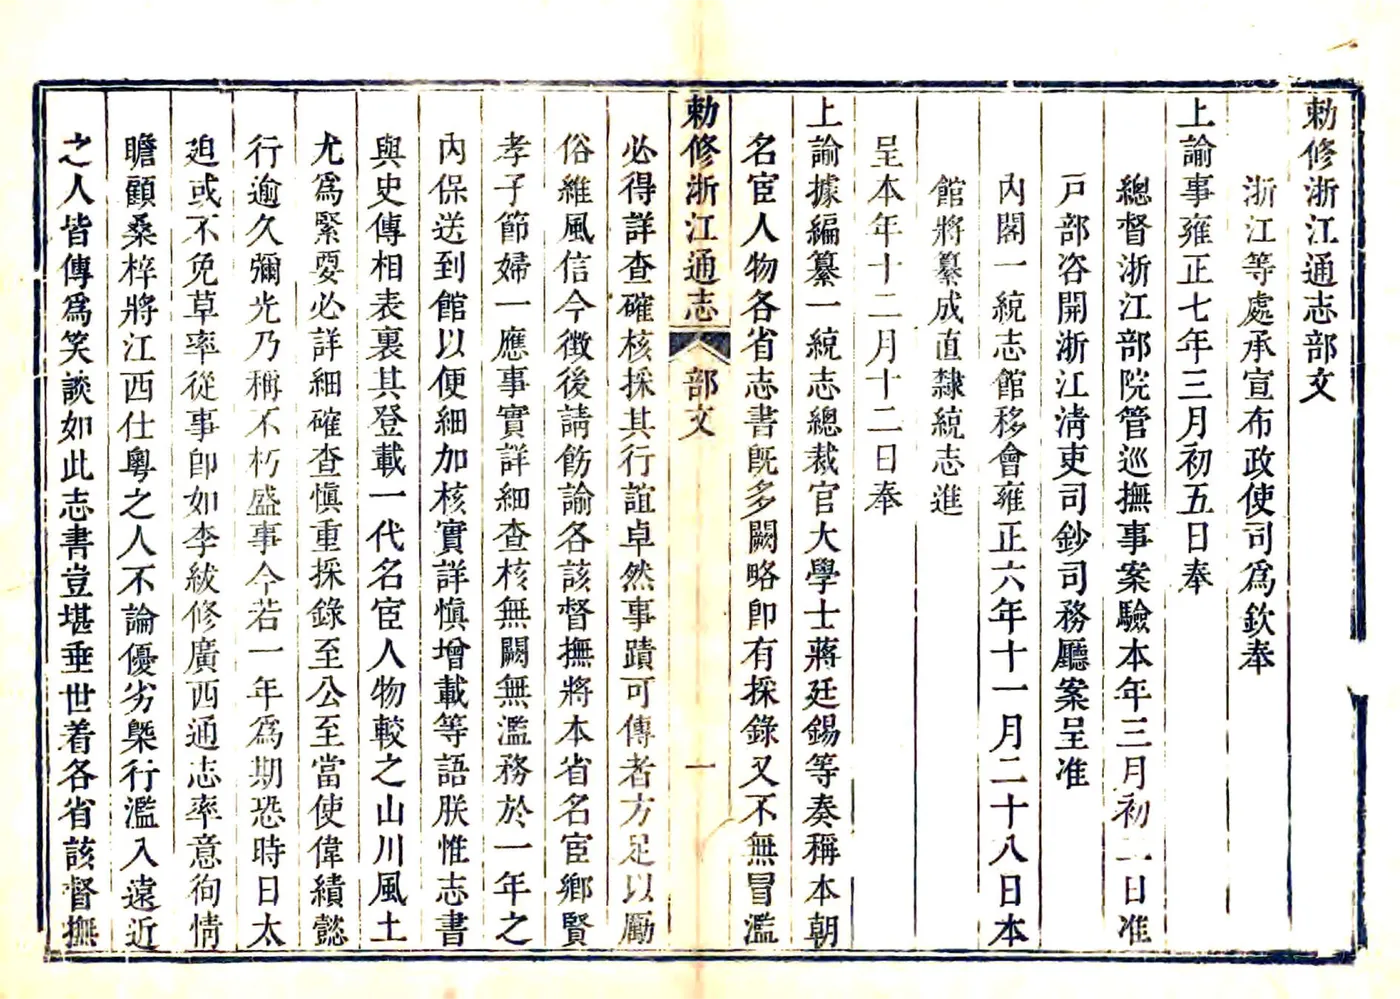 勅修浙江通志部文
浙江等處承宣布政使司爲欽奉
上諭事雍正七年三月初五日奉
總督浙江部院管巡撫事案驗本年三月初二日准
戸部咨開浙江淸吏司鈔司務廳案呈准
內閣一統志館移會雍正六年十一月二十八日本
館將纂成直隸統志進
呈本年十二月十二日奉
上諭據編纂一統志總裁官大學士蔣廷錫等奏稱本朝
名宦人物各省志書旣多闕略卽有採錄又不無冒濫
勅修浙江通志
部文
一
必得詳查確核採其行誼卓然事蹟可傳者方足以勵
俗維風信今徵後請飭諭各該督撫將本省名宦鄉賢
孝子節婦一應事實詳細查核無闕無濫務於一年之
內保送到館以便細加核實詳愼增載等語朕惟志書
與史傳相表裏其登載一代名宦人物較之山川風土
尤爲緊要必詳細確查愼重採錄至公至當使偉績懿
行逾久彌光乃稱不朽盛事今若一年爲期恐時日太
迫或不免草率從事卽如李紱修廣西通志率意徇情
瞻顧桑梓將江西仕粵之人不論優劣槩行濫入遠近
之人皆傳爲笑談如此志書豈堪垂世着各省該督撫